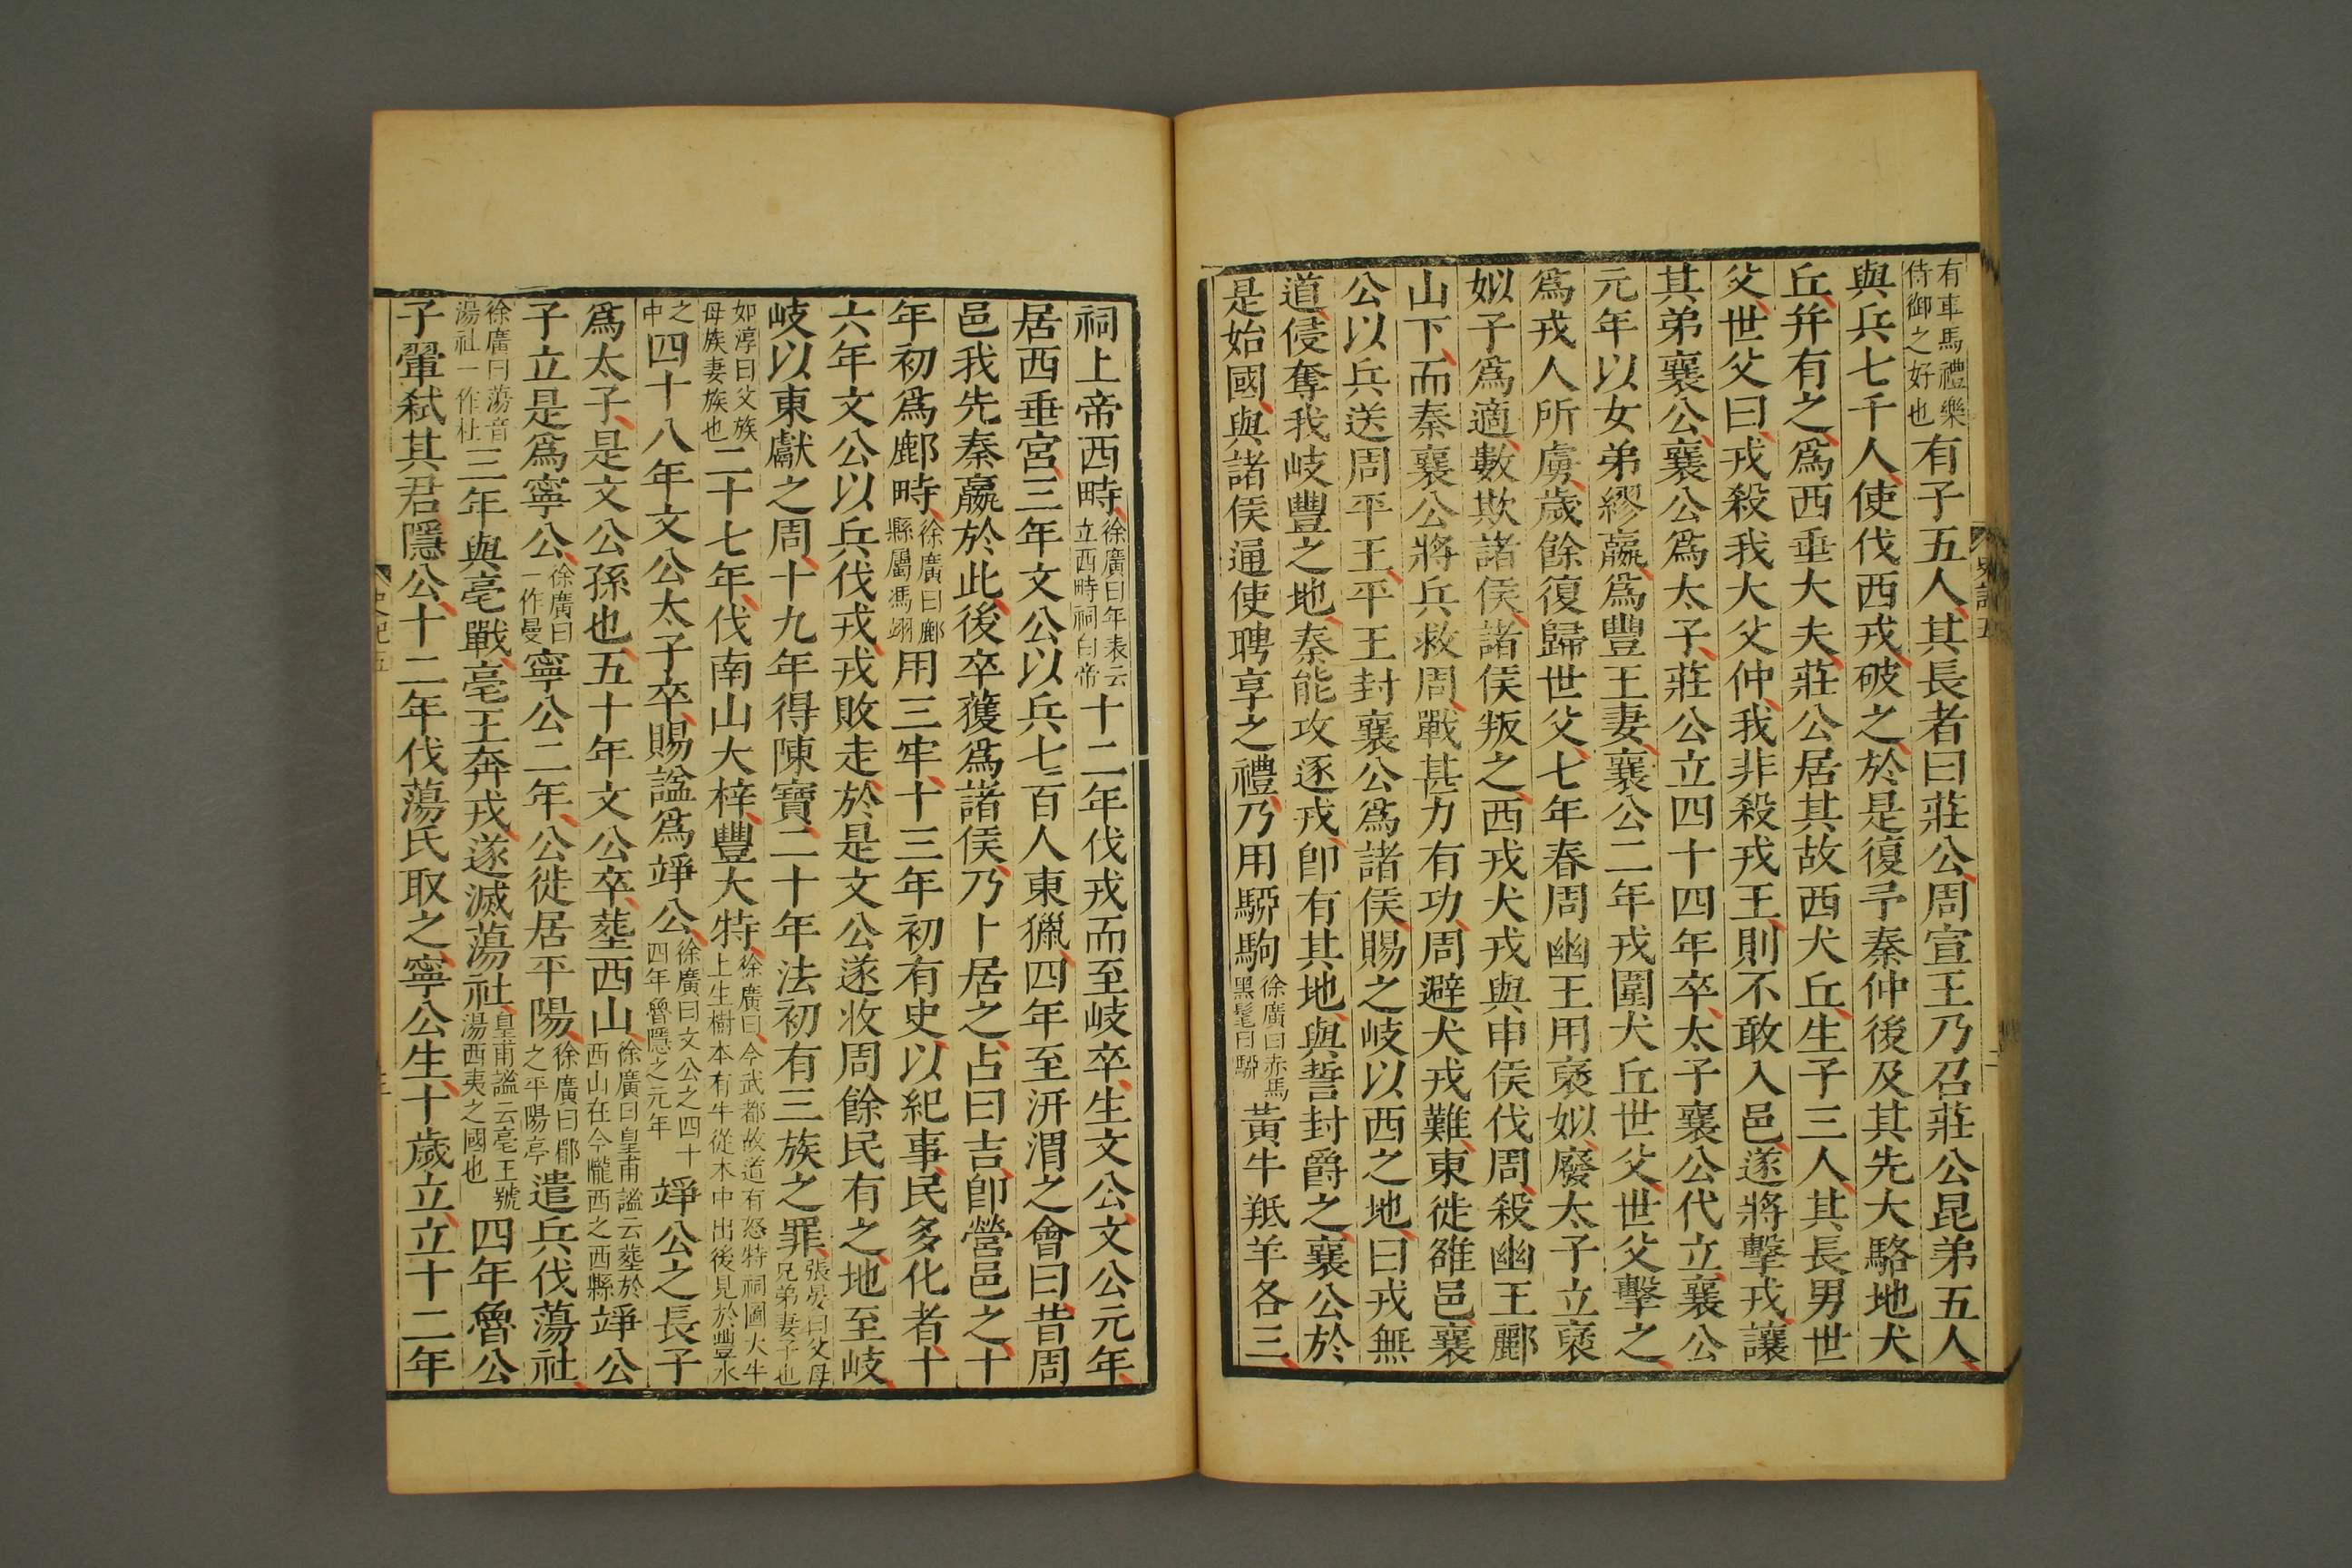 有車馬禮樂侍御之好也有子五人其長者曰莊公周宣王乃召莊公昆弟五人
與兵七千人使伐西戎破之於是復予秦仲後及其先大駱地犬
丘幷有之爲西垂大夫莊公居其故西犬丘生子三人其長男世
父世父曰戎殺我大父仲我非殺戎王則不敢入邑遂將擊戎讓
其弟襄公襄公爲太子莊公立四十四年卒太子襄公代立襄公
元年以女弟繆嬴爲豐王妻襄公二年戎圍犬丘世父世父擊之
爲戎人所虜歲餘復歸世父七年春周幽王用襃姒廢太子立襃
姒子爲適數欺諸侯諸侯叛之西戎犬戎與申侯伐周殺幽王酈
山下而秦襄公將兵救周戰甚力有功周避犬戎難東徙雒邑襄
公以兵送周平王平王封襄公爲諸侯賜之岐以西之地曰戎無
道侵奪我岐豐之地秦能攻逐戎卽有其地與誓封爵之襄公於
是始國與諸侯通使聘享之禮乃用騮駒徐廣曰赤馬黑髦曰騮黃牛羝羊各三
史記五
祠上帝西畤徐廣曰年表云立西畤祠白帝十二年伐戎而至岐卒生文公文公元年
居西垂宮三年文公以兵七百人東獵四年至汧渭之會曰昔周
邑我先秦嬴於此後卒獲爲諸侯乃卜居之占曰吉卽營邑之十
年初爲鄜畤徐廣曰鄜縣屬馮翊用三牢十三年初有史以紀事民多化者十
六年文公以兵伐戎戎敗走於是文公遂收周餘民有之地至岐
岐以東獻之周十九年得陳寶二十年法初有三族之罪張晏曰父母兄弟妻子也
如淳曰父族母族妻族也二十七年伐南山大梓豐大特徐廣曰今武都故道有怒特祠圖大牛上生樹本有牛從木中出後見於豐水
之中四十八年文公太子卒賜諡爲竫公徐廣曰文公之四十四年魯隱之元年竫公之長子
爲太子是文公孫也五十年文公卒葬西山徐廣曰皇甫謐云葬於西山在今隴西之西縣竫公
子立是爲寧公徐廣曰一作曼寧公二年公徙居平陽徐廣曰郿之平陽亭遣兵伐蕩社
徐廣曰蕩音湯社一作杜三年與亳戰亳王奔戎遂滅蕩社皇甫謐云亳王號湯西夷之國也四年魯公
子翬弒其君隱公十二年伐蕩氏取之寧公生十歲立立十二年
史記五